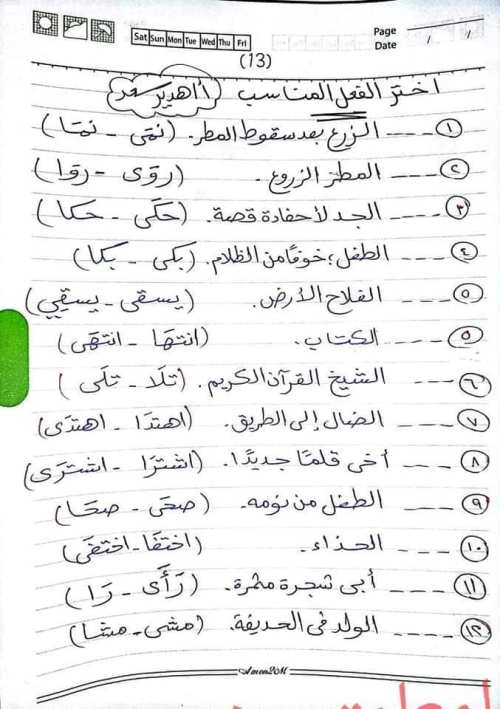 Sat Sun Mon Tue Wed Thu Fri
Page
Date / /
(13)
اختر الفعل المناسب أ/هدير سعد
١ ـــ الزرع بعد سقوط المطر. (نمَى - نمَا)
٢ ـــ المطر الزروع. (روَى - روَا)
٣ ـــ الجد لأحفاده قصة. (حكَى - حكَا)
٤ ـــ الطفل؛ خوفًا من الظلام. (بكى - بكا)
٥ ـــ الفلاح الأرض. (يسقى - يسقي)
٥ ـــ الكتاب. (انتهَا - انتهَى)
٦ ـــ الشيخ القرآن الكريم. (تلَا - تلَى)
٧ ـــ الضال إلى الطريق. (اهتدَا - اهتدَى)
٨ ـــ أخى قلمًا جديدًا. (اشترَا - اشترَى)
٩ ـــ الطفل من نومه. (صحَى - صحَا)
١٠ ـــ الحذاء. (اختفَا - اختفَى)
١١ ـــ أبى شجرة مثمرة. (رَأَى - رَا)
١٢ ـــ الولد فى الحديقة. (مشى - مشا)